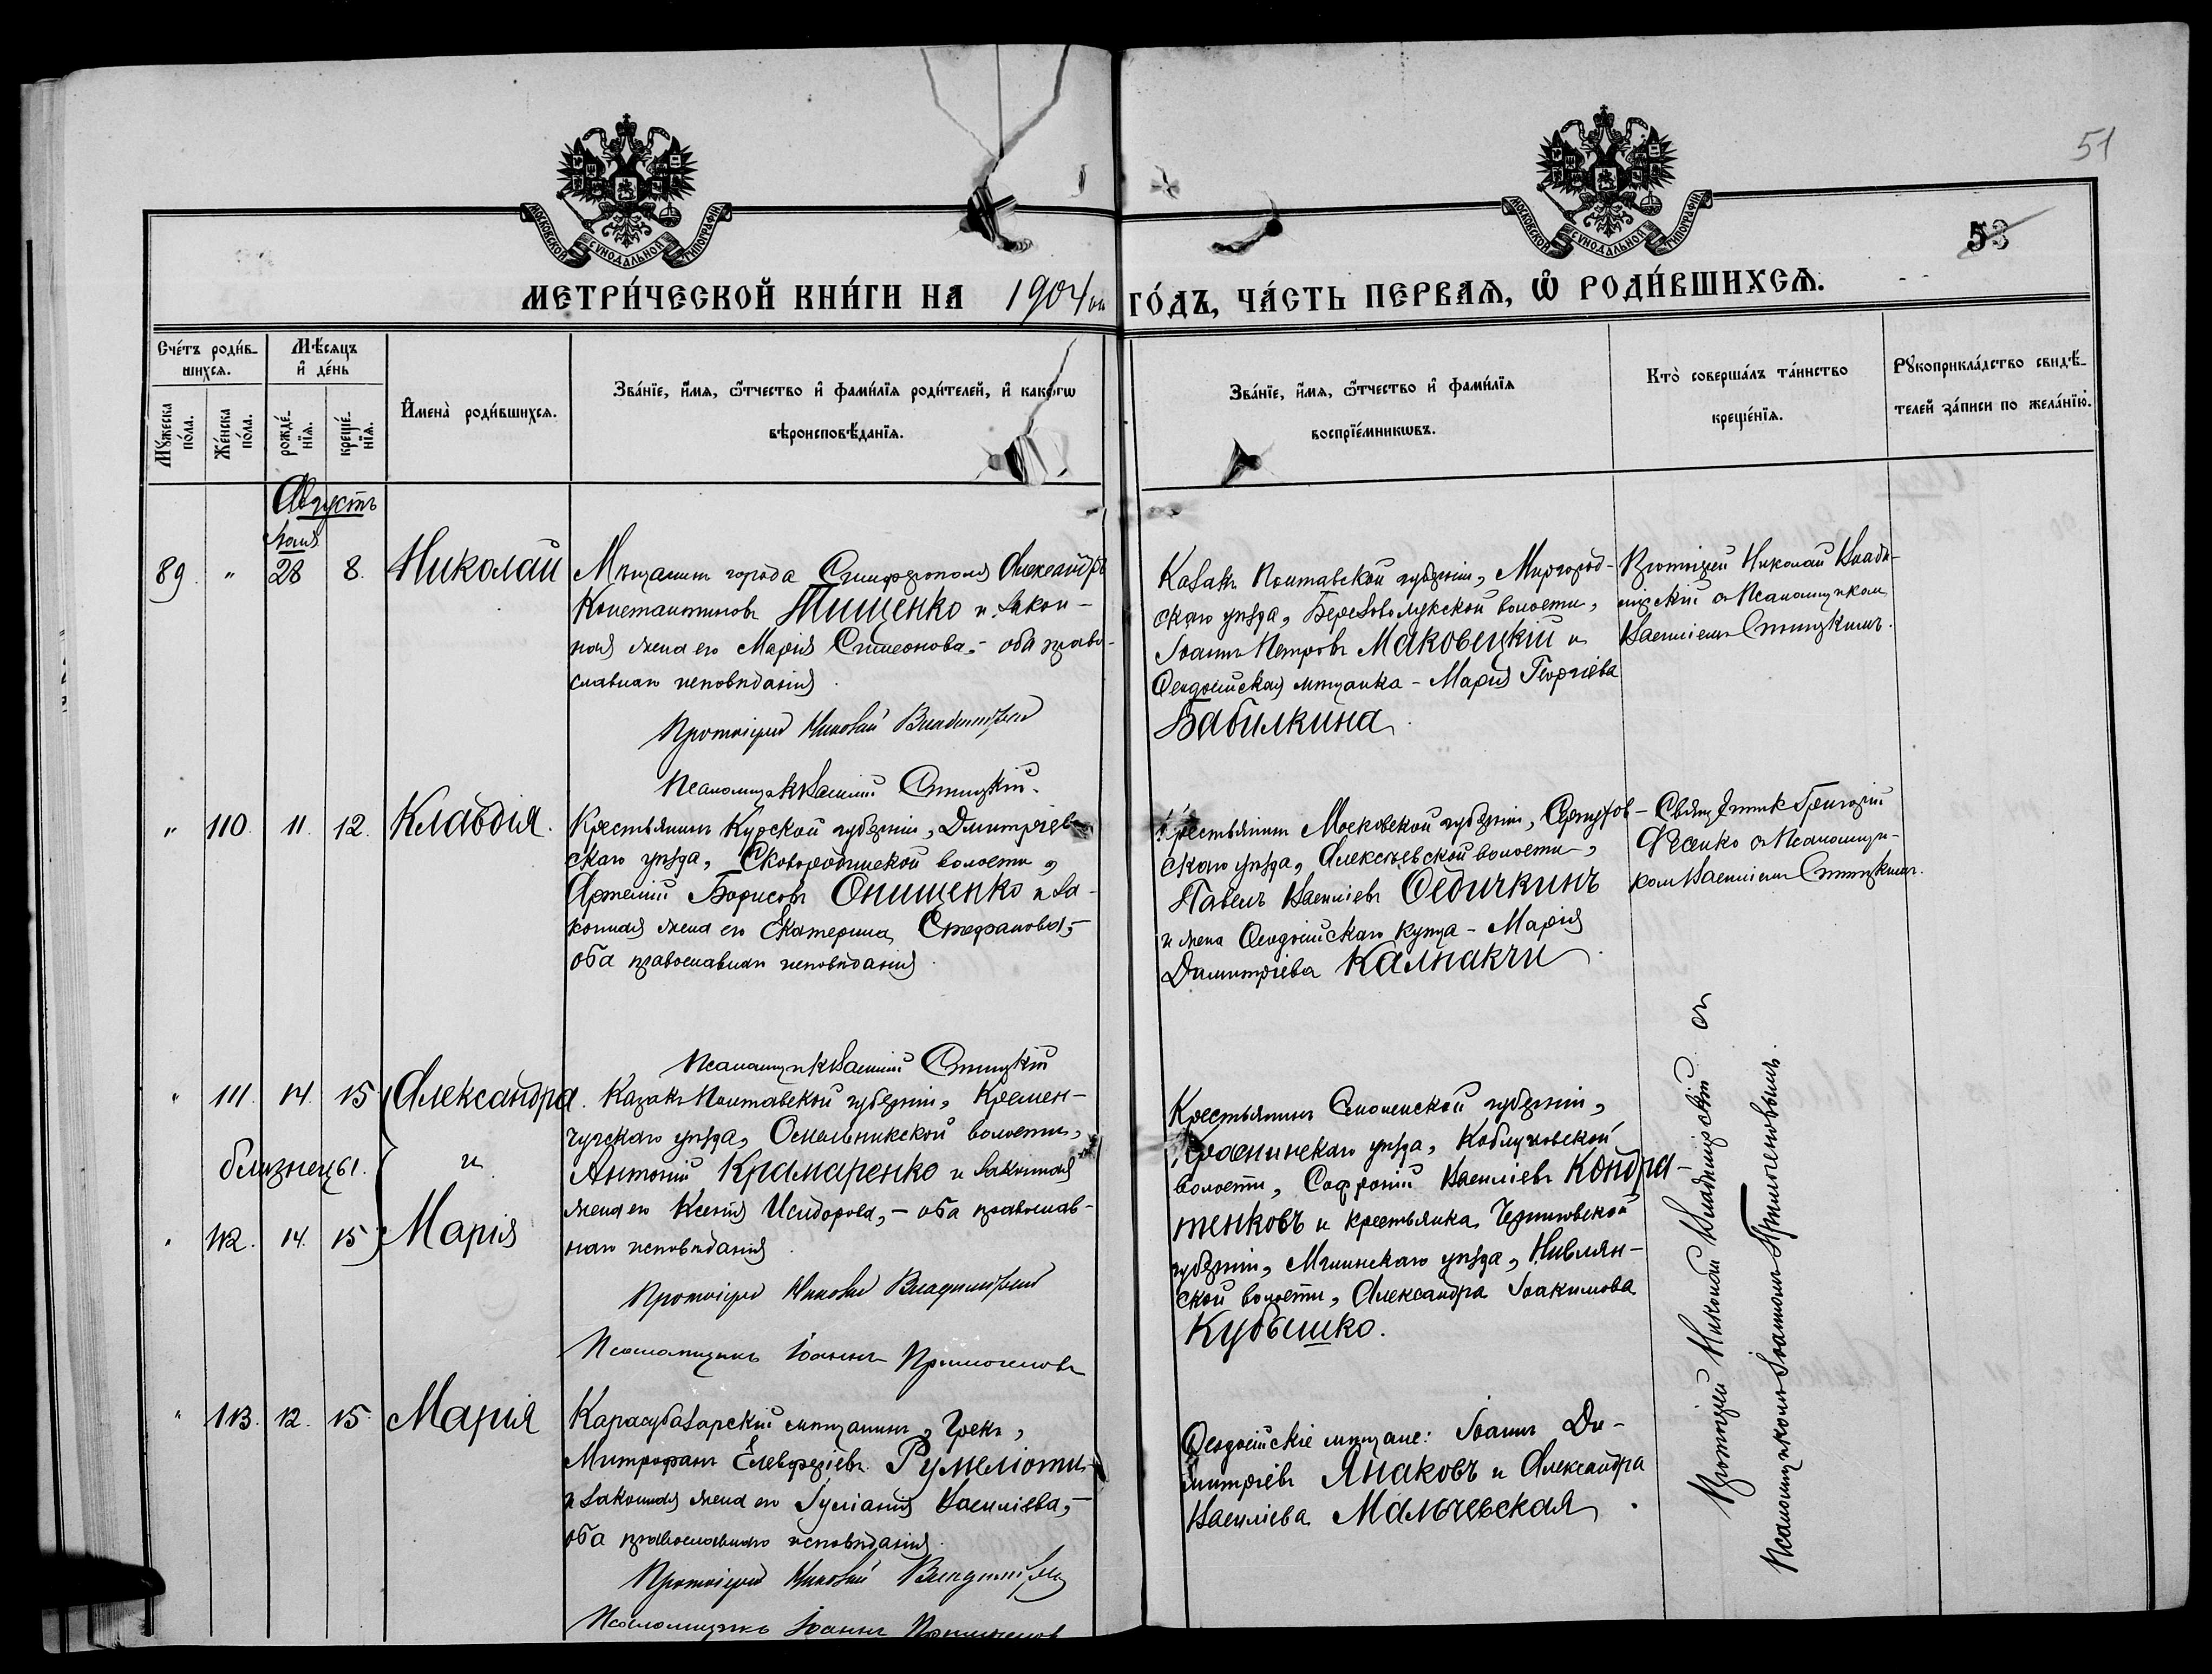 51
МОСКОВСКОЙ СѴНОДАЛЬНОЙ ТИПОГРАФІИ
МОСКОВСКОЙ СѴНОДАЛЬНОЙ ТИПОГРАФІИ
53
МЕТРИ́ЧЕСКОЙ КНИ́ГИ НА 1904 ый ГО́ДЪ, ЧА́СТЬ ПЕРВАѦ, Ѿ РОДИ́ВШИХСѦ.
Сче́тъ роди́в-
шихсѧ.
Мꙋ́жеска
по́ла.
Же́нска
по́ла.
Мѣ́сѧцъ
и҆ де́нь
рожде́-
нїѧ.
креще́-
нїѧ.
И҆мена̀ роди́вшихсѧ.
Зва́нїе, и҆́мѧ, ѻ҆́тчество и҆ фами́лїѧ роди́телей, и҆ како́гѡ
вѣроисповѣ́данїѧ.
Зва́нїе, и҆́мѧ, ѻ҆́тчество и҆ фами́лїѧ
воспрїе́мникѡвъ.
Кто̀ соверша́лъ та́инство
креще́нїѧ.
Рꙋкоприкла́дство свидѣ́-
телей за́писи по жела́нїю.
Августъ
Іюля
89. " 28 8. Николай
Мѣщанинъ города Симферополя Александръ
Константиновъ Тищенко и закон-
ная жена его Марія Симеонова,- оба право-
славнаго исповѣданія.
Протоіерей Николай Владимірскій
Псаломщикъ Василій Стицкій.
Казакъ Полтавской губерніи, Миргород-
скаго уѣзда, Березоволукской волости,
Іоаннъ Петровъ Маковецкій и
Ѳеодосійская мѣщанка - Марія Георгіева
Бабилкина.
Протоіерей Николай Влади-
мірскій съ Псаломщикомъ
Василіемъ Стицкимъ.
" 110. 11. 12. Клавдія.
Крестьянинъ Курской губерніи, Дмитріев-
скаго уѣзда, Сковороднеской волости,
Артемій Борисовъ Онищенко и за-
конная жена его Екатерина Стефанова,-
оба православнаго исповѣданія.
Псаломщикъ Василій Стицкій
Крестьянинъ Московской губерніи, Серпухов-
скаго уѣзда, Алексѣевской волости,
Павелъ Василіевъ Ѳедичкинъ
и жена Ѳеодосійскаго купца - Марія
Димитріева Калпакчи.
Священникъ Григорій
Ѳесенко съ Псаломщи-
комъ Василіемъ Стицкимъ.
" 111. 14. 15 Александра
близнецы. и
" 112. 14. 15 Марія
Казакъ Полтавской губерніи, Кремен-
чугскаго уѣзда, Омельникской волости,
Антоній Крамаренко и законная
жена его Ксенія Исидорова,- оба православ-
наго исповѣданія.
Протоіерей Николай Владимірскій
Псаломщикъ Іоаннъ Примогеновъ
Крестьянинъ Смоленской губерніи,
Краснинскаго уѣзда, Кобеляковской
волости, Софроній Василіевъ Кондра-
тенковъ и крестьянка Черниговской
губерніи, Мглинскаго уѣзда, Нивлян-
ской волости, Александра Іоакимова
Кубышко.
" 113. 12. 15. Марія
Карасубазарскій мѣщанинъ, Грекъ,
Митрофанъ Елевферіевъ Румеліоти
и законная жена его Іуліанія Василіева,-
оба православнаго исповѣданія.
Протоіерей Николай Владимірскій
Псаломщикъ Іоаннъ Примогеновъ
Ѳеодосійскіе мѣщане: Іоаннъ Ди-
митріевъ Янаковъ и Александра
Василіева Мальчевская.
Протоіерей Николай Владимірскій съ
Псаломщикомъ Іоанномъ Примогеновымъ.